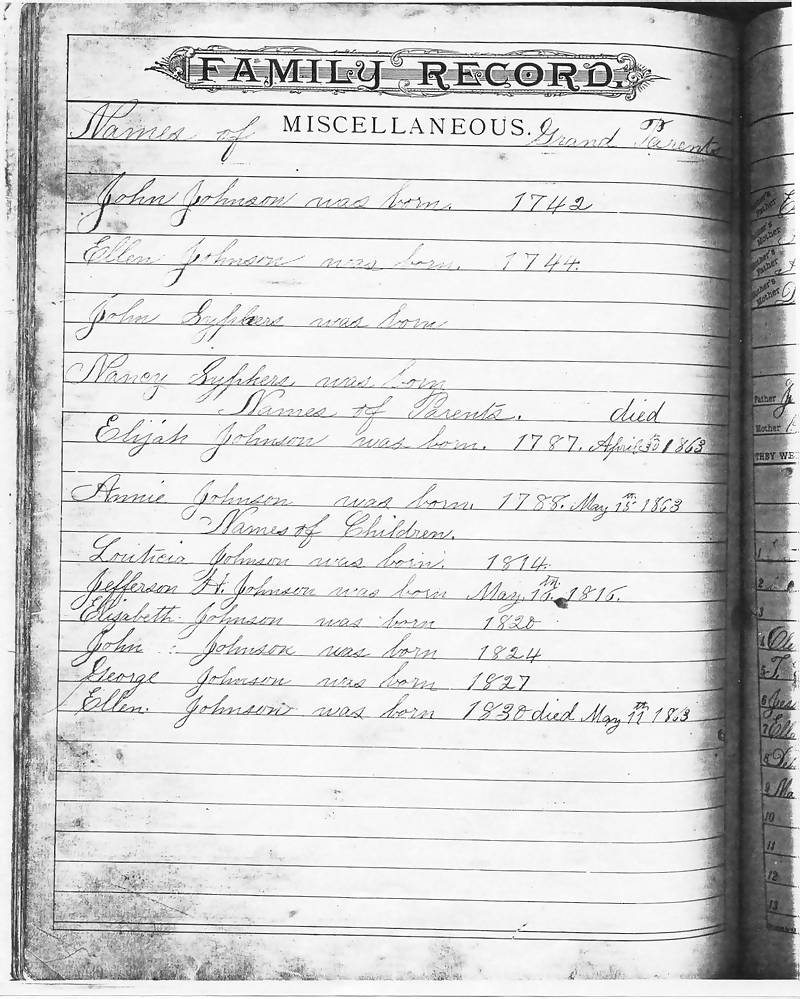 FAMILY RECORD.
MISCELLANEOUS.
Names of Grand Parents
John Johnson was born. 1742
Ellen Johnson was born. 1744.
John Syphers was born
Nancy Syphers was born
Names of Parents. died
Elijah Johnson was born. 1787. April 30 1863
Annie Johnson was born. 1788. May 15th 1863
Names of Children.
Louticia Johnson was born. 1814.
Jefferson H. Johnson was born May. 11th. 1816.
Elisabeth Johnson was born 1820
John Johnson was born 1824
George Johnson was born 1827
Ellen. Johnson was born 1830 died May 11th 1863
Father
Mother
Father
Mother
Father
Mother
THBY WE
1
2
3
4
5
6
7
8
9 Ma
10
11
12
13